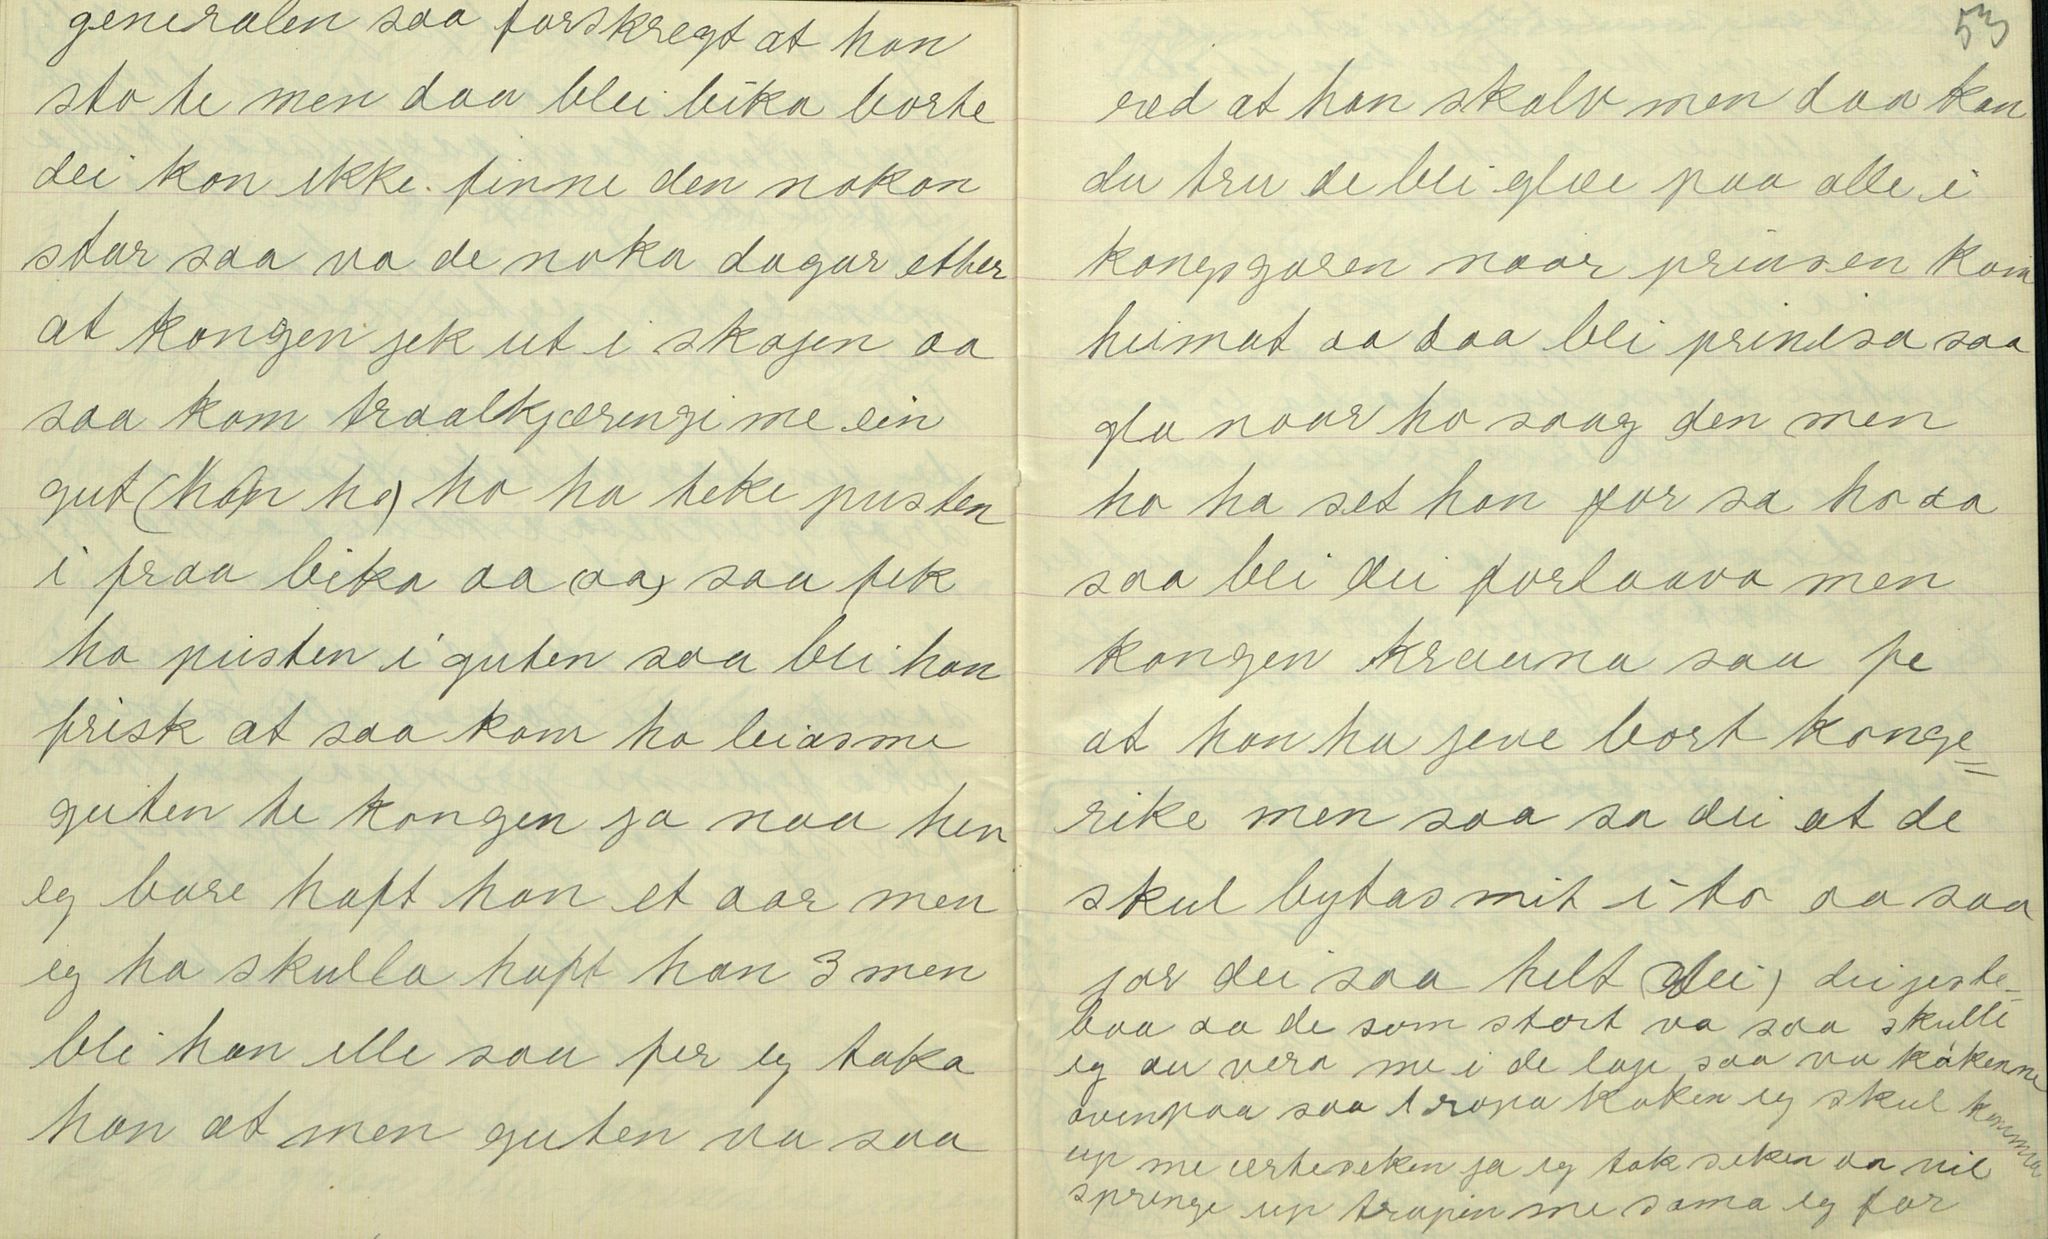 generalen saa forskregt at han
sto te men daa blei bika borte
dei kon ikke finne den nokon
star saa va de noka dagar etter
at kongen jek ut i skojen aa
saa kom traalkjæringi me ein
gut (han ho) ho ha teke pusten
i fraa bika aa (aa) saa fek
ho pusten i guten saa blei han
frisk at saa kom ho leiasme
guten te kongen ja naa hen
eg bare haft han et aar men
eg ha skulla haft han 3 men
bli han elle saa fer eg taka
han at men guten va saa
53
ræd at han skalv men daa kan
du tru de blei glæe paa alle i
kongsgaren naar prinsen kom
heimat aa daa blei prinsesa saa
gla naar ho saag den men
ho ha set han før sa ho aa
saa blei dei forlaava men
kongen krauna saa fe
at han ha jeve bort konge=
rike men saa sa dei at de
skul bytas mit i to aa saa
jor dei saa helt (dei) dei jeste-
baa aa de som stort va saa skulle
eg au vera me i de laje saa va kåkenne
ovenpaa saa ropa koken eg skul komma
up me erteseken ja eg tok seken aa vil
springe up trapen me sama eg for